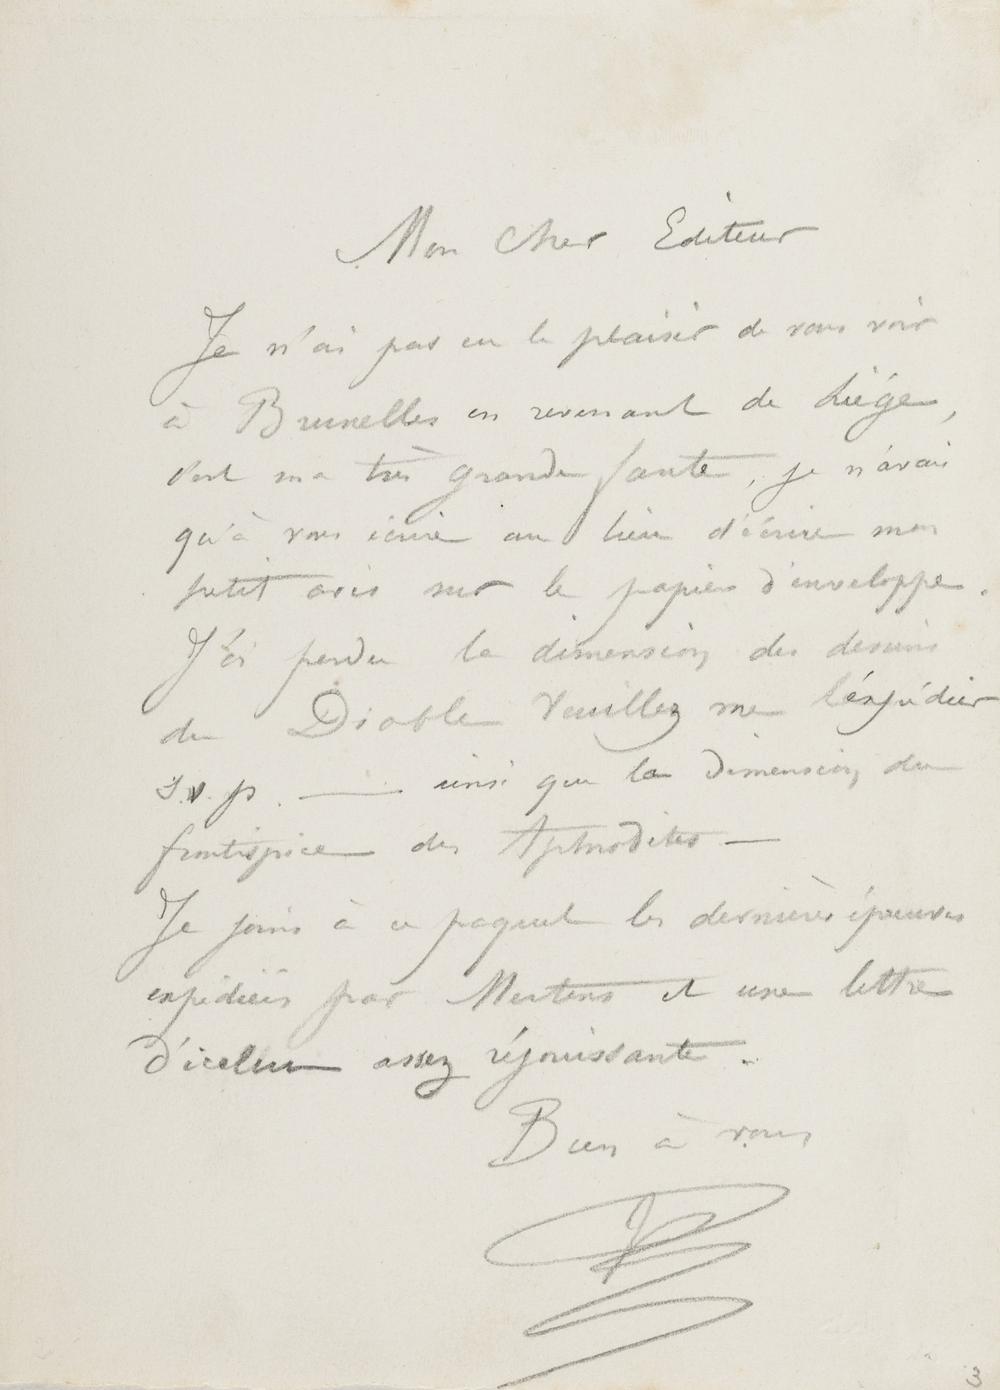 Mon Cher Editeur
Je n'ai pas eu le plaisir de vous voir
à Bruxelles en revenant de Liége,
c'est ma très grande faute, je n'avais
qu'à vous écrire au lieu d'écrire mon
petit avis sur le papier d'enveloppe.
J'ai perdu la dimension des dessins
du Diable Veuillez me l'expédier
s.v.p. — ainsi que la dimension du
frontispice des Aphrodites —
Je joins à ce paquet les dernières épreuves
expédiées par Mertens et une lettre
d'icelui assez réjouissante.
Bien à vous
3